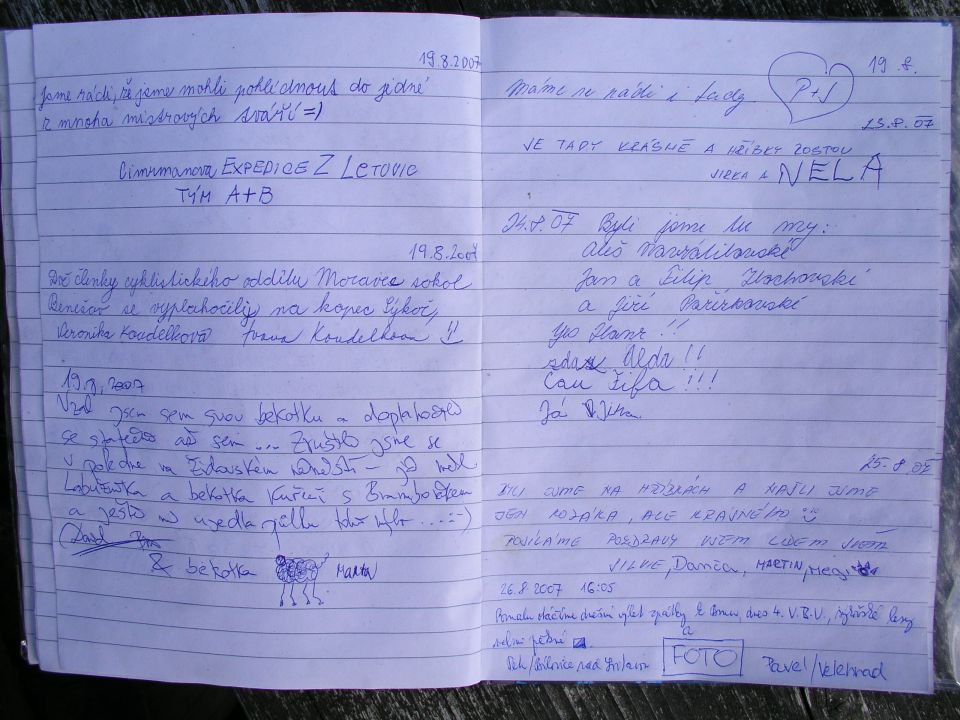 19.8.2007
Jsme rádi, že jsme mohli pohlédnout do jedné
z mnoha mistrových sváří =)
Cimrmanova EXPEDICE Z LETOVIC
TÝM A+B
19.8.2007
Dvě členky cyklistického oddílu Moravec sokol
Benešov se vyplahočily na kopec Sýkoř,
Veronika Koudelková Ivana Koudelková !!
19.8.2007
Vzal jsem sem svou bekotku a doplahočili
se statečně až sem ... Zrušili jsme se
v poledne na Židovském náměstí – já měl
a bekotka kuřecí s Bramborákem
a ještě mi ujedla půlku ... :-)
David
& bekotka MARTA
19.8.
Máme se rádi i tady. P+J
23.8.07
JE TADY KRÁSNĚ A HŘÍBKY ROSTOU
JIRKA A NELA
24.8.07 Byli jsme tu my:
Aleš
Jan a Filip
a Jiří
!!
Alda !!
Čau Žifa !!!
Já
25.8.07
BYLI JSME NA HŘIBÁCH A NAŠLI JSME
JEN KOZÁKA, ALE KRÁSNÉHO
POSÍLÁME POZDRAVY VŠEM LIDEM
SILVIE, Danča, MARTIN, Meg
26.8.2007 16:05
Pomalu otáčíme dnešní výlet zpátky k Brnu, dnes 4. V.B.V., sýkořské lesy
velmi pěkné
a
FOTO Pavel/Velehrad